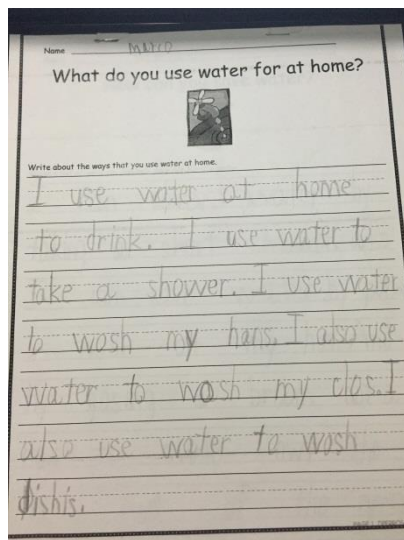 Name Marco
What do you use water for at home?
Write about the ways that you use water at home.
I use water at home
to drink. I use water to
take a shower. I use water
to wosh my hans. I also use
water to wosh my clos. I
also use water to wosh
dishis.